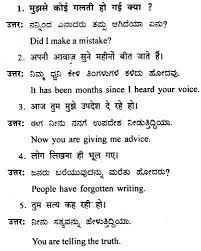 1. मुझसे कोई गलती हो गई क्या ?
उत्तर: ನನ್ನಿಂದ ಎನಾದರು ತಪ್ಪು ಆಗಿದೆಯಾ ಏನು?
Did I make a mistake?
2. अपनी आवाज़ सुने महीनों बीत जाते हैं।
उत्तर: ನಿಮ್ಮ ಧ್ವನಿ ಕೇಳಿ ತಿಂಗಳುಗಳೆ ಕಳೆದು ಹೋದವು.
It has been months since I heard your voice.
3. आज तुम मुझे उपदेश दे रहे हो।
उत्तर: ಈಗ ನೀನು ನನಗೆ ಉಪದೇಶ ನೀಡುತ್ತಿದ್ದಿಯಾ.
Now you are giving me advice.
4. लोग लिखना ही भूल गए।
उत्तर: ಜನರು ಬರೆಯುವುದನ್ನು ಮರೆತು ಹೋದರು?
People have forgotten writing.
5. तुम सत्य कह रही हो।
उत्तर: ನೀನು ಸತ್ಯವನ್ನು ಹೇಳುತ್ತಿದ್ದಿಯಾ.
You are telling the truth.